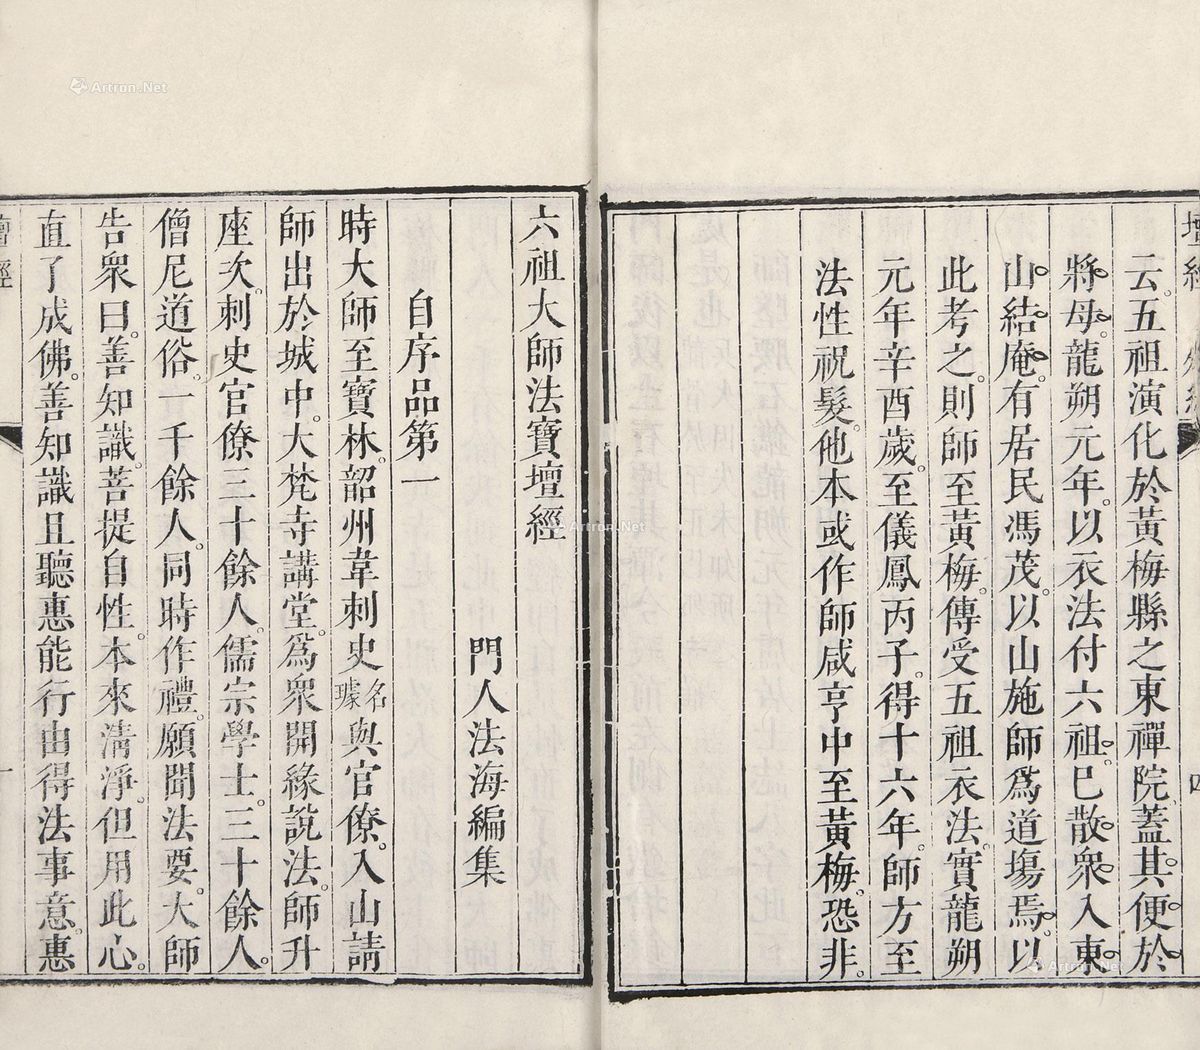 壇經
云。五祖演化於黃梅縣之東禪院蓋其便於
將母。龍朔元年。以衣法付六祖。已散衆入東
山結庵。有居民馮茂。以山施師爲道場焉。以
此考之。則師至黃梅。傳受五祖衣法。實龍朔
元年辛酉歲。至儀鳳丙子。得十六年。師方至
法性祝髮。他本或作師咸亨中至黃梅。恐非。
六祖大師法寶壇經
門人法海編集
自序品第一
時大師至寶林。韶州韋刺史名璩與官僚。入山請
師出於城中。大梵寺講堂。爲衆開緣說法。師升
座次。刺史官僚三十餘人。儒宗學士。三十餘人。
僧尼道俗。一千餘人。同時作禮。願聞法要。大師
告衆曰。善知識。菩提自性。本來清淨。但用此心。
直了成佛。善知識且聽惠能行由得法事意。惠
壇經
Artron.Net
Artron.Net
Artron.Net